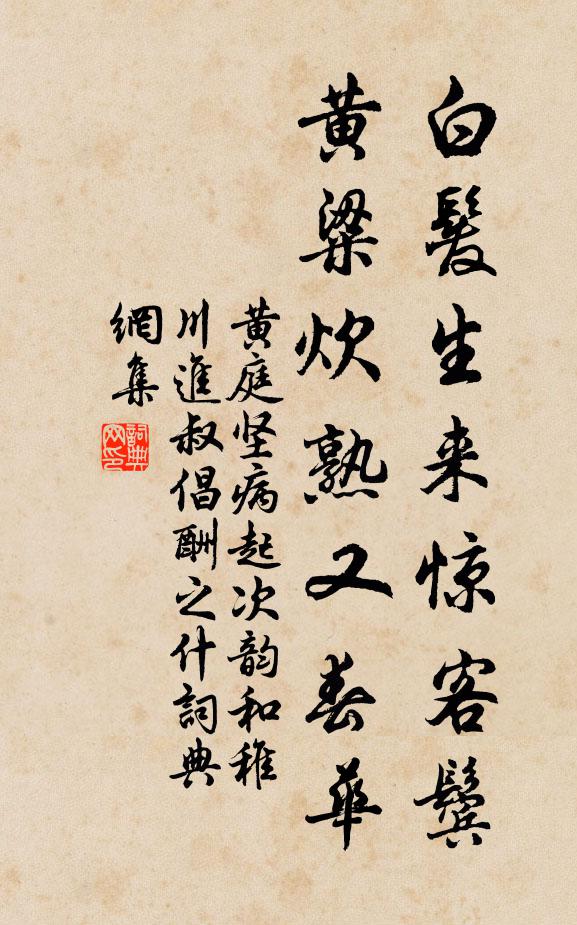 白髮生来惊客鬓
黄粱炊熟又春華
黄庭坚病起次韵和稚
川進叔倡酬之什詞典
網集
詞典
网印